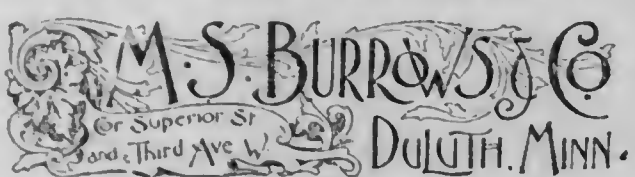 M. S. BURROWS & Co
Cor Superior St
and Third Ave W.
DULUTH, MINN.